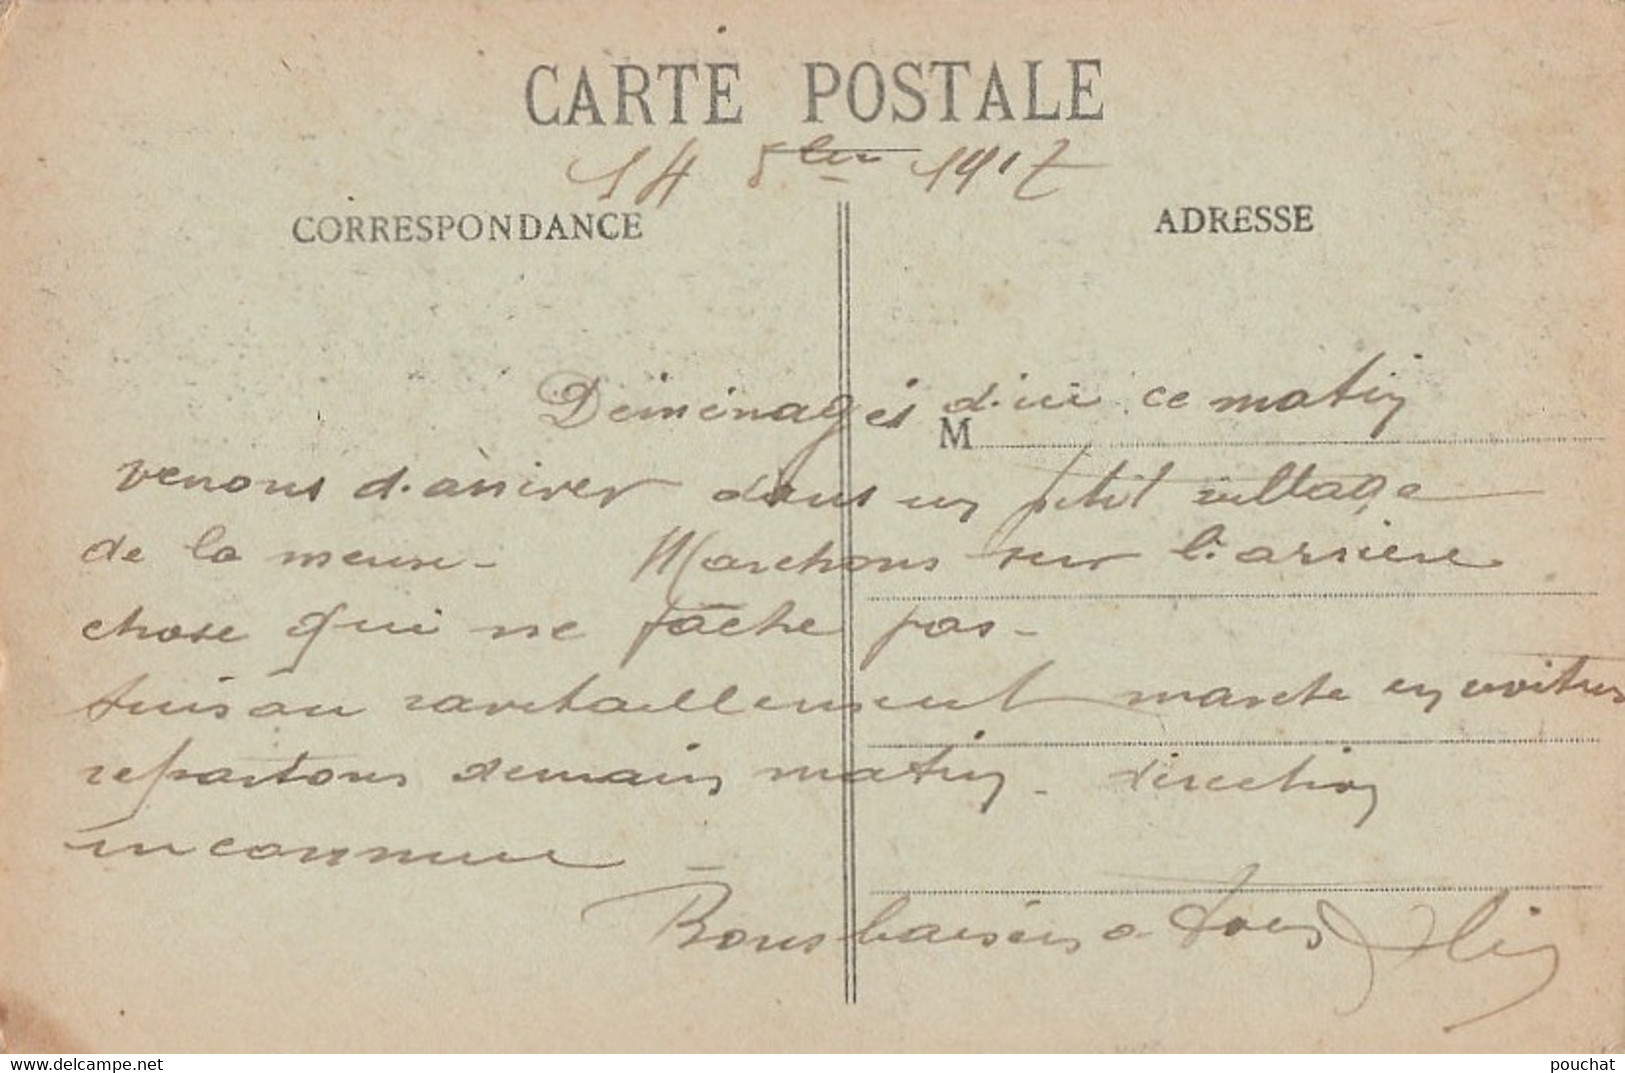 CARTE POSTALE
14 8bre 1917
CORRESPONDANCE
ADRESSE
Déménagés d'ici ce matin
M
venons d'arriver dans un petit village
de la meuse - Marchons sur l'arrière
chose qui ne fâche pas -
suis au ravitaillement marche en voiture
repartons demain matin - direction
inconnue -
Bons baisers a tous
www.delcampe.net
pouchat